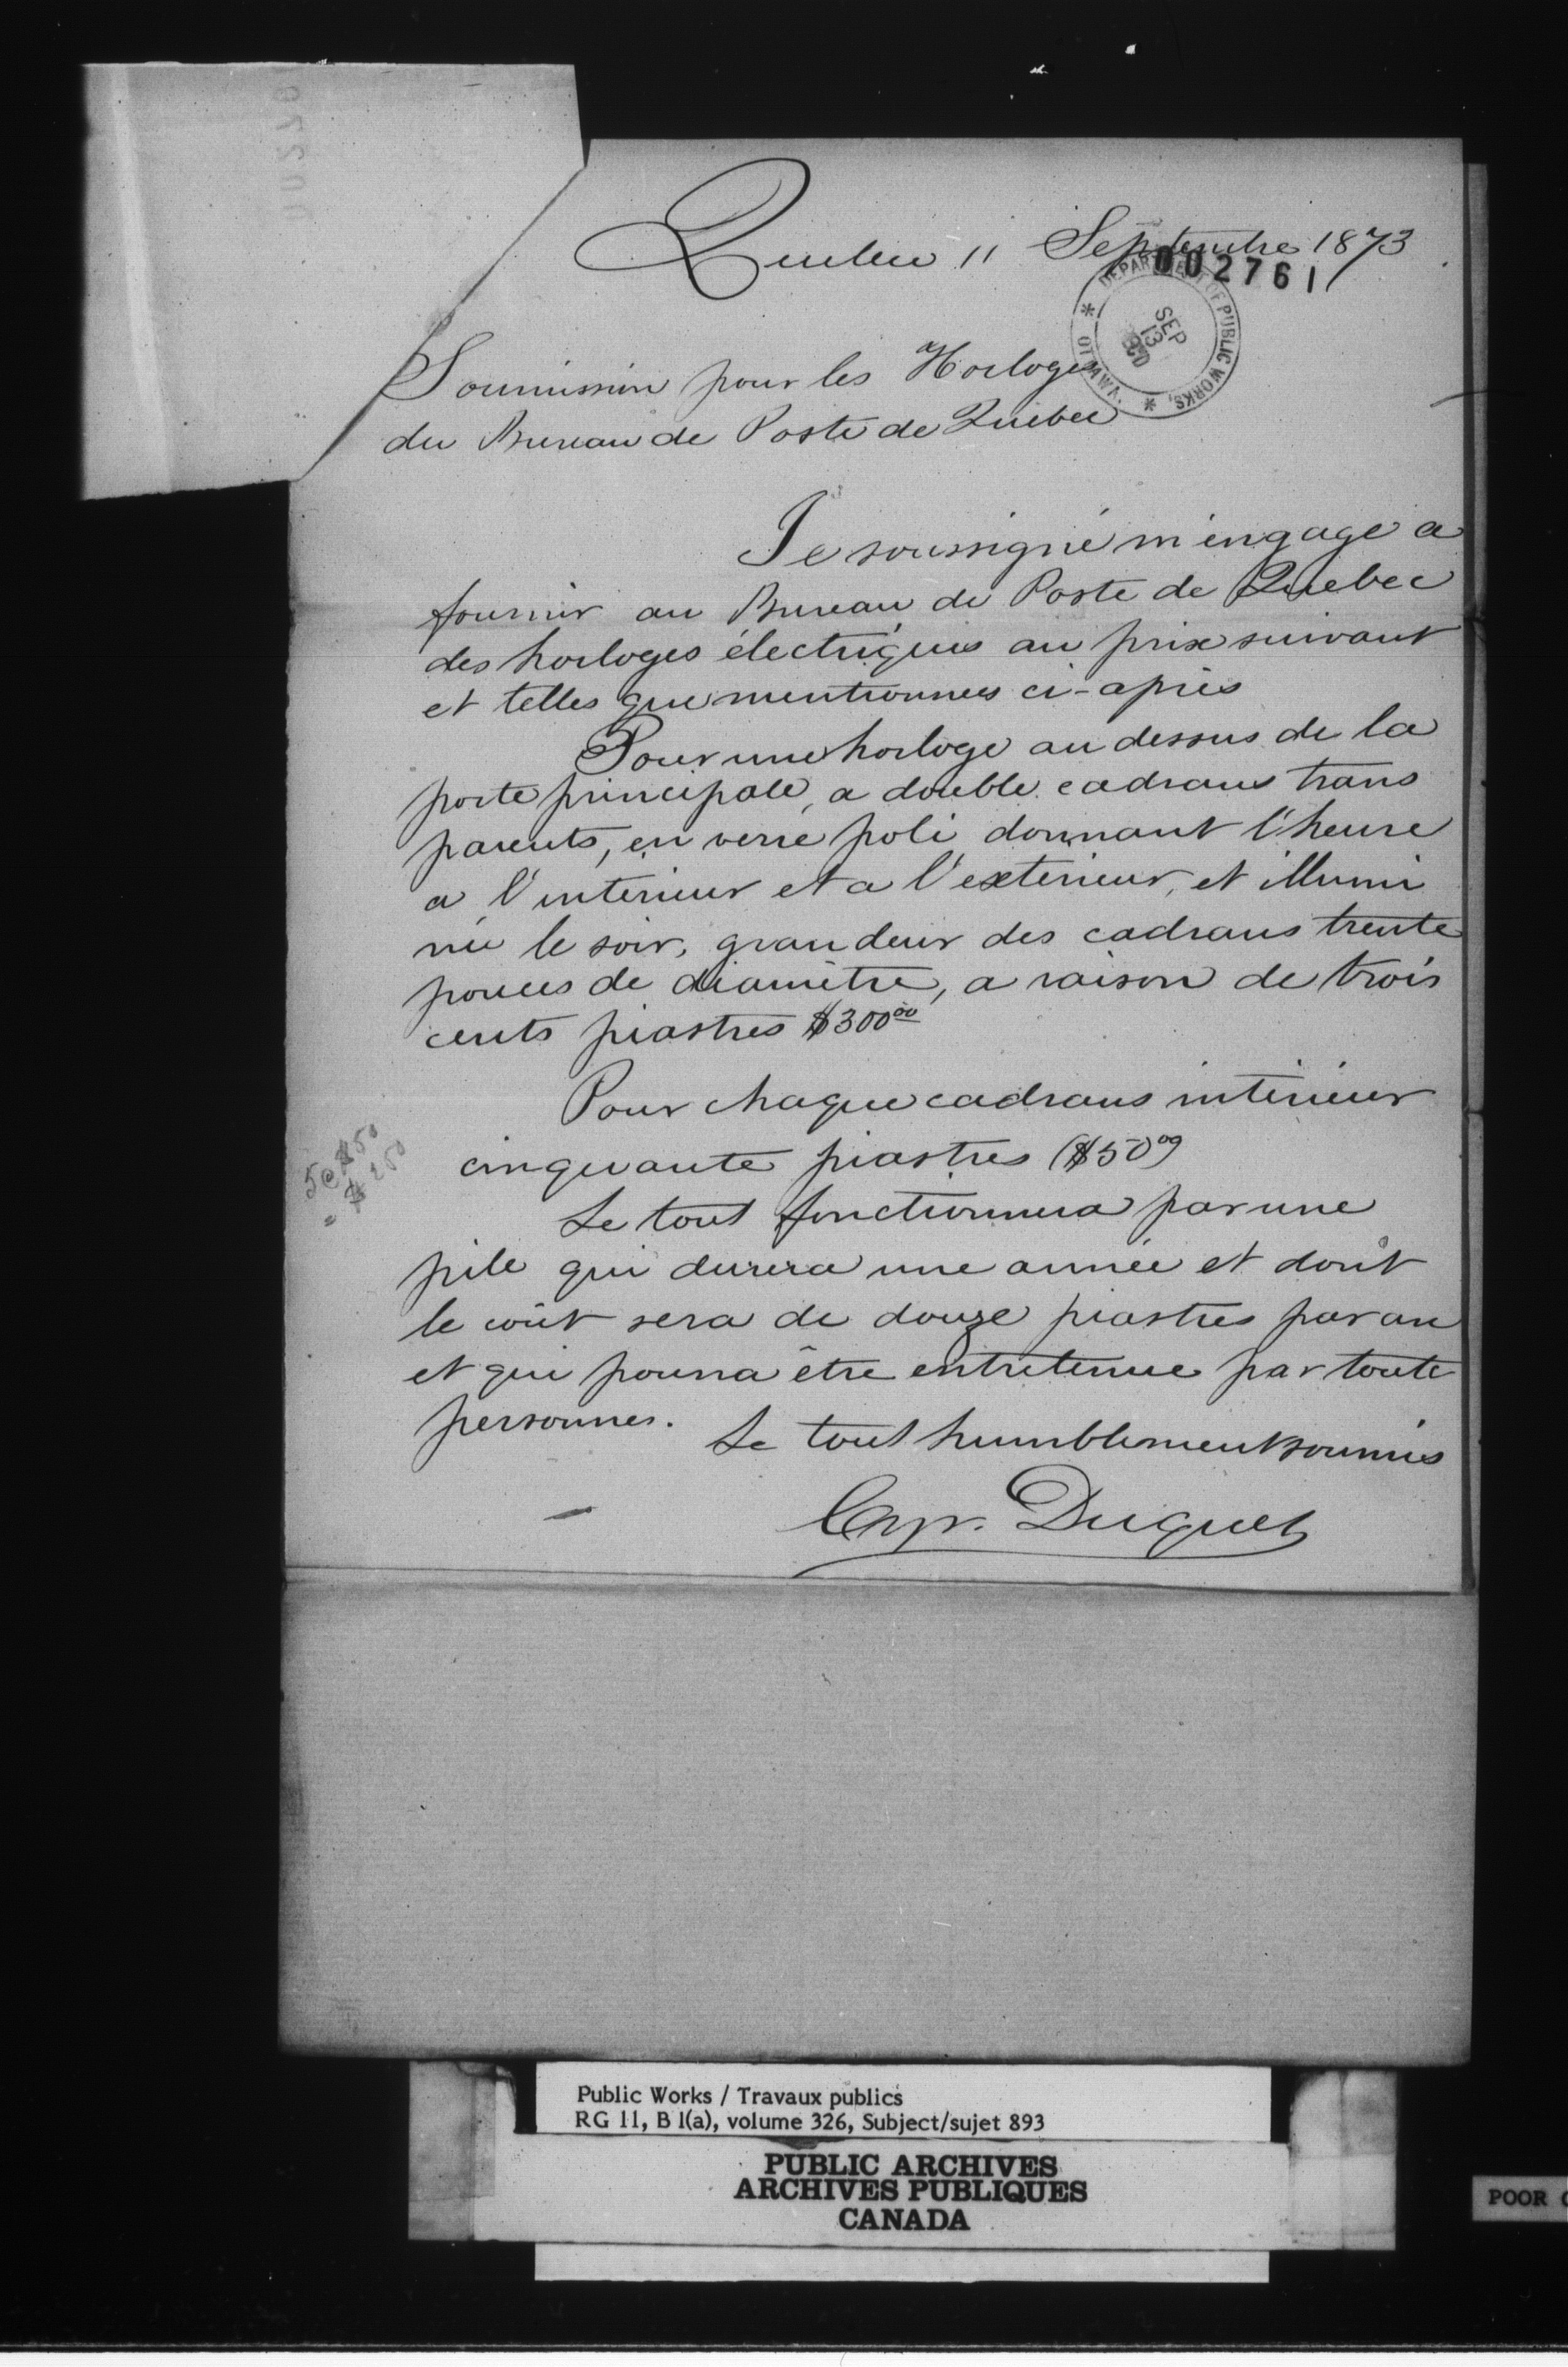 Quebec 11 Septembre 1873
002761
DEPARTMENT OF PUBLIC WORKS, OTTAWA
SEP
13
Soumission pour les Horloges
du Bureau de Poste de Québec
Je soussigné m'engage a
fournir au Bureau de Poste de Quebec
des horloges électriques au prix suivant
et telles que mentionnees ci-après
Pour une horloge au dessus de la
porte principale, a double cadrans trans
parents, en verre poli donnant l'heure
a l'intérieur et a l'extérieur, et illumi
née le soir, grandeur des cadrans trente
pouces de diamètre, a raison de trois
cents piastres $300 00
Pour chaque cadrans intérieur
cinquante piastres ($50 00)
5@ $50
= $250
Le tout fonctionnera par une
pile qui durera une année et dont
le coût sera de douze piastres par an
et qui pourra être entretenue par toute
personnes.
Le tout humblement soumis
Cyr. Duquet
Public Works / Travaux publics
RG 11, B 1(a), volume 326, Subject/sujet 893
PUBLIC ARCHIVES
ARCHIVES PUBLIQUES
CANADA
POOR